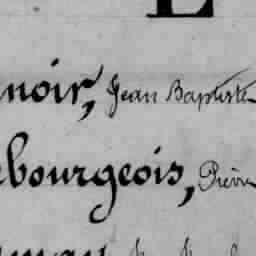 L
noir, Jean Baptiste
bourgeois, Pierre